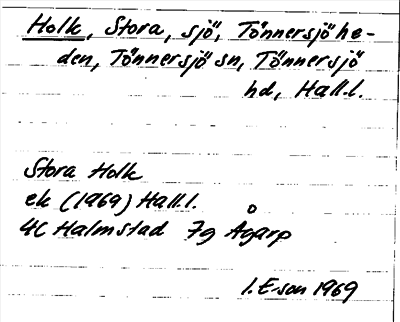 Holk, Stora, sjö, Tönnersjöhe-
den, Tönnersjö sn, Tönnersjö
hd, Hall.l.
Stora Holk
ek (1969) Hall.l.
4C Halmstad 7g Ågarp
I. Eson 1969